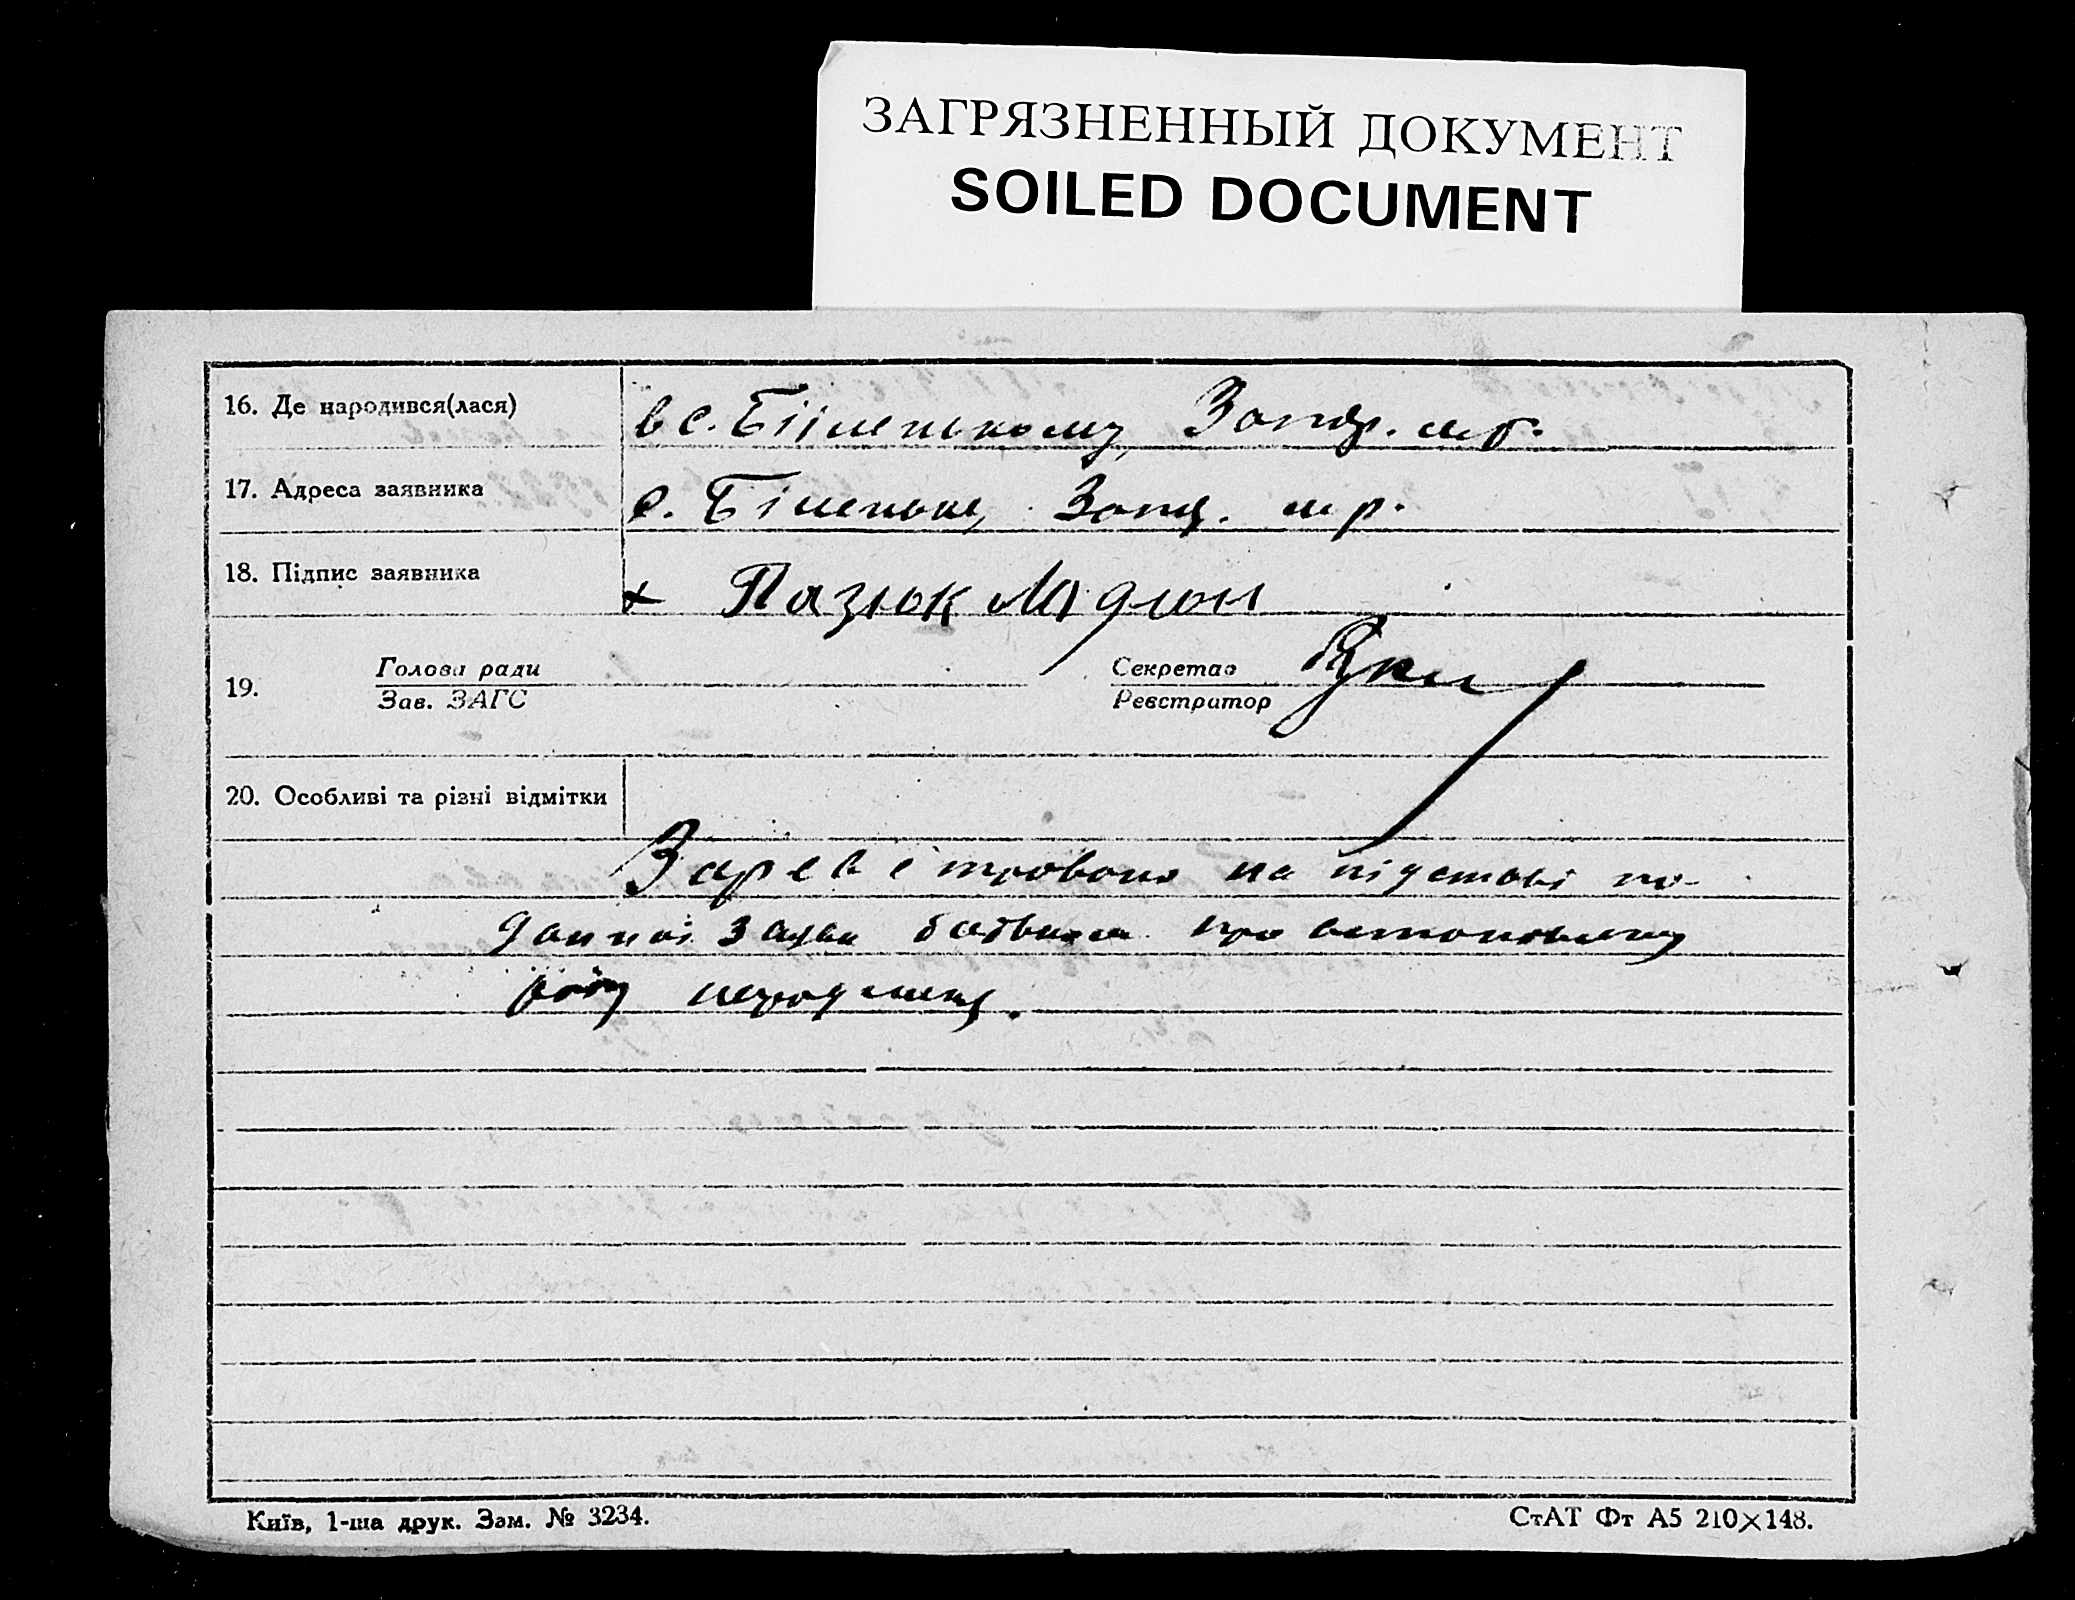 ЗАГРЯЗНЕННЫЙ ДОКУМЕНТ
SOILED DOCUMENT
16. Де народився(лася) в с. Біленькому, Запор.
17. Адреса заявника с. Біленьке, Запор.
18. Підпис заявника + Пазюк
19. Голова ради Секретар
Зав. ЗАГС Реєстратор
20. Особливі та різні відмітки
Зареєстровано на підставі по-
данної заяви батьком про встановлену
народження.
Київ, 1-ша друк. Зам. № 3234. СтАТ Фт А5 210×148.